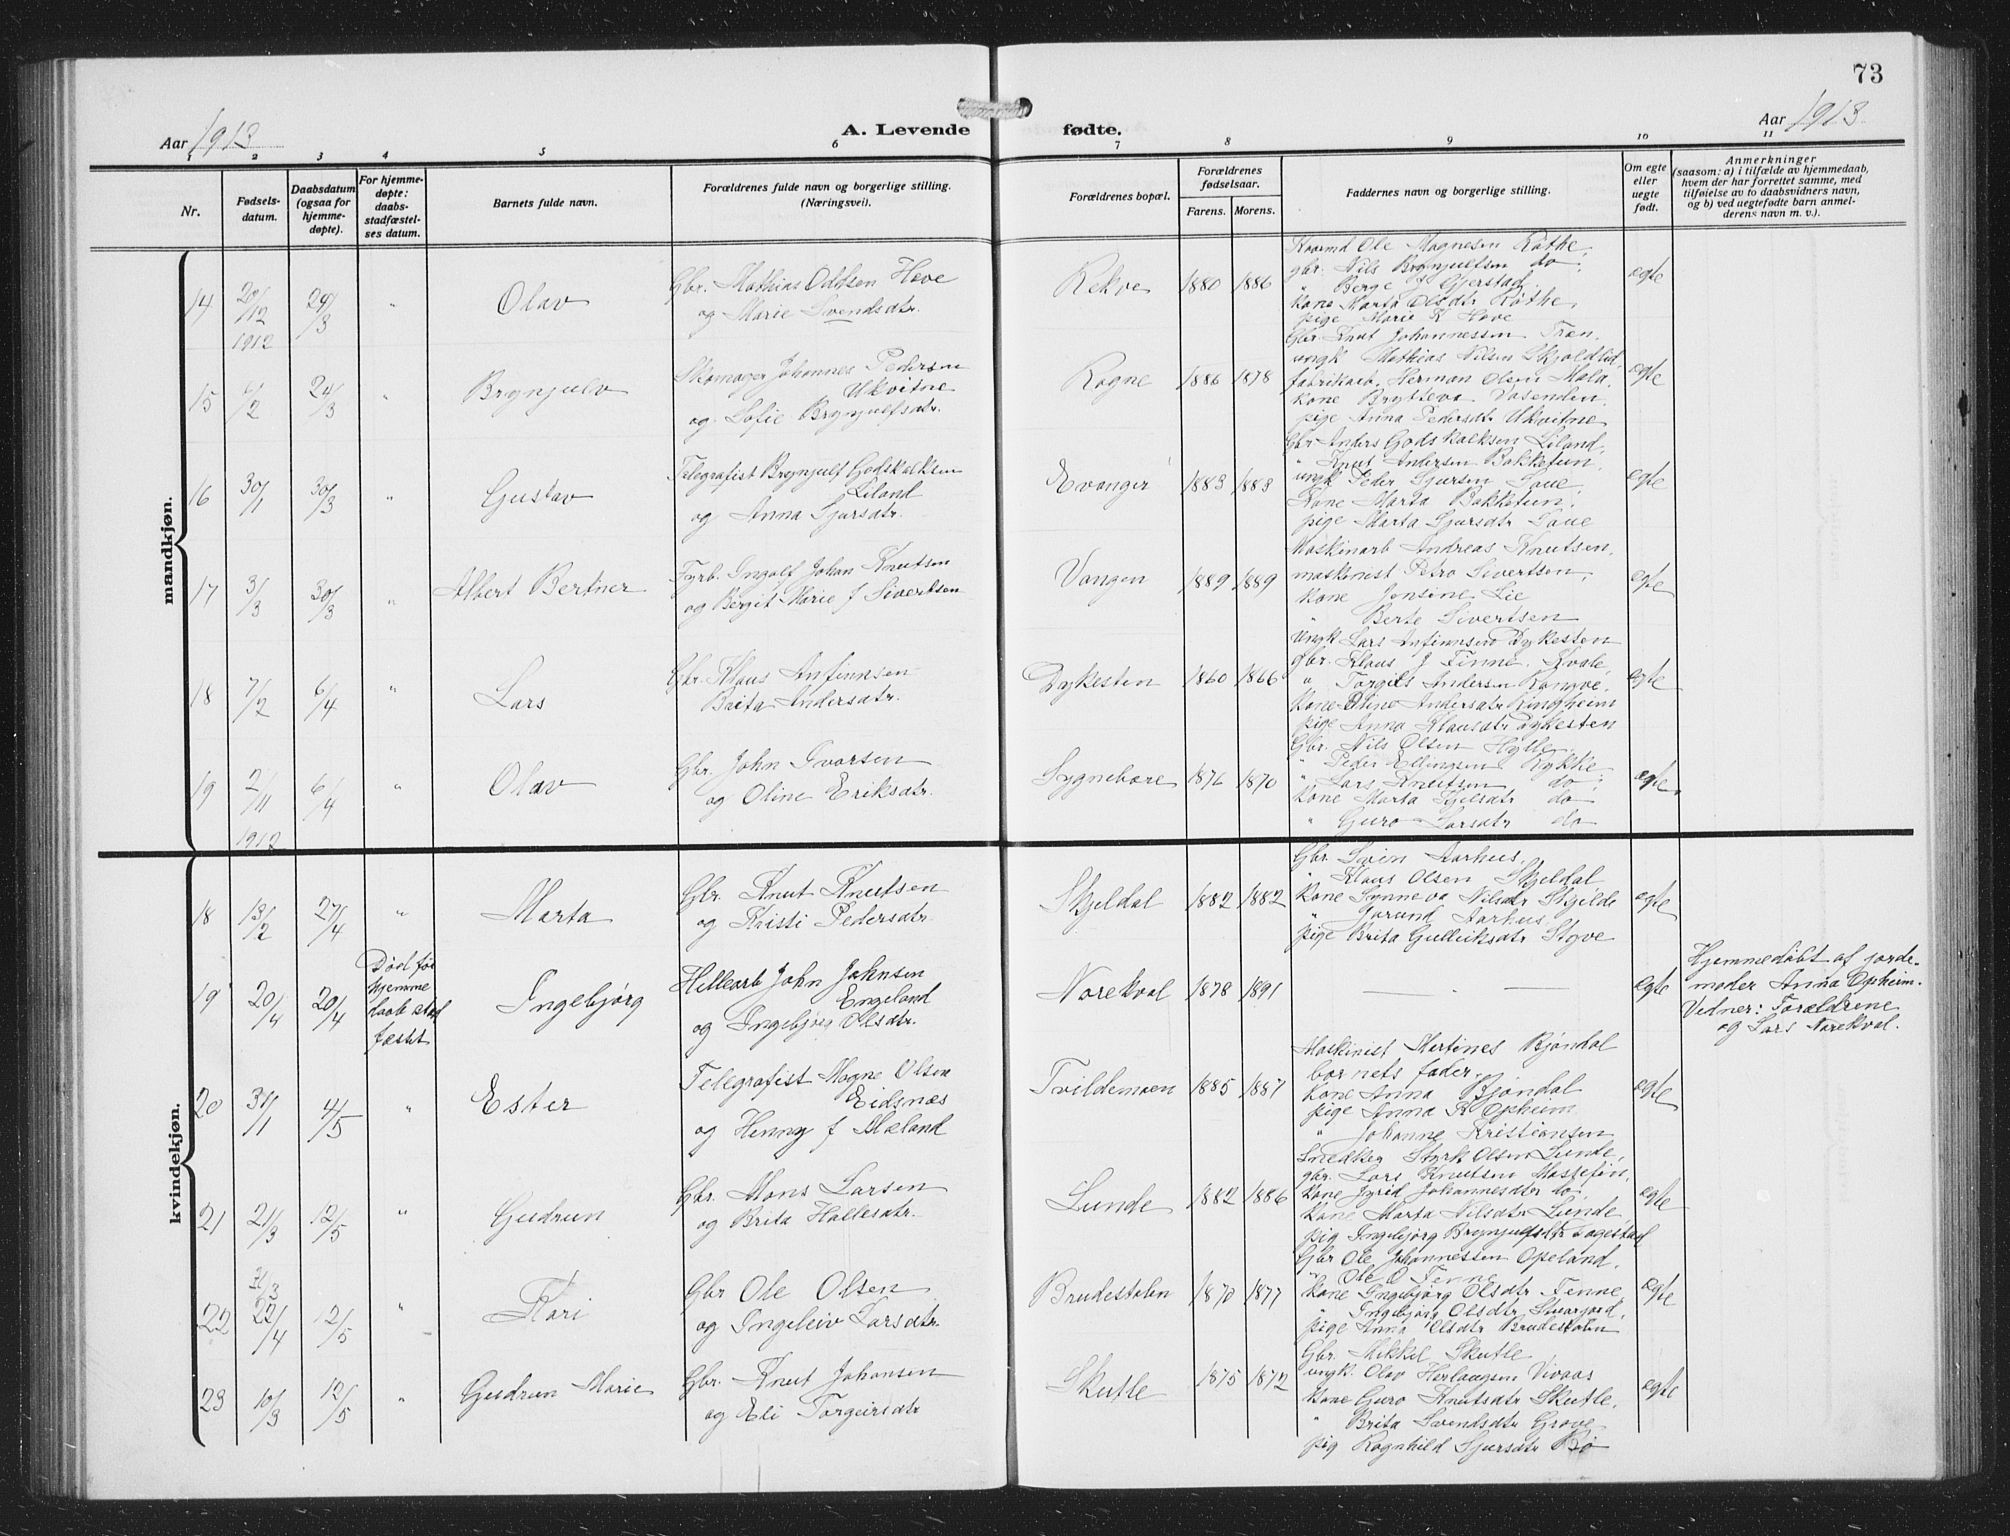 73
Aar 1913
A. Levende fødte.
Aar 1913
1 2 3 4 5 6 7 8 9 10 11
Nr.
Fødsels-
datum.
Daabsdatum
(ogsaa for
hjemme-
døpte).
For hjemme-
døpte:
daabs-
stadfæstel-
ses datum.
Barnets fulde navn.
Forældrenes fulde navn og borgerlige stilling.
(Næringsvei).
Forældrenes bopæl.
Forældrenes
fødselsaar.
Farens. Morens.
Faddernes navn og borgerlige stilling.
Om egte
eller
uegte
født.
Anmerkninger
(saasom: a) i tilfælde av hjemmedaab,
hvem der har forrettet samme, med
tilføielse av to daabsvidners navn,
og b) ved uegtefødte barn anmel-
derens navn m. v.).
mandkjøn.
14 20/12 1912 24/3 " Olav
Gbr. Mathias Oddsen Hove
og Marie Svendsdtr.
Rekve 1880 1886
Kaarmd Ole Magnesen Røthe,
gbr. Nils Brynjulfsen do,
" Berge Gjerstad,
kone Marta Olsdtr Røthe,
pige Marie K Hove
egte
15 6/2 24/3 " Brynjulv
Skomager Johannes Pedersen
Ukvitne
og Sofie Brynjulfsdtr.
Rogne 1886 1878
Gbr Knut Johannessen Træn,
ungk Mathias Nilsen Skjoldlid,
fabrikarb. Herman Olsen Mala,
kone Brytteva Vasenden,
pige Anna Pedersdtr Ukvitne
egte
16 30/1 30/3 " Gustav
Telegrafist Brynjulf Godskalksen
Liland
og Anna Sjursdtr.
Evanger 1883 1883
Gbr Anders Godskalksen Liland,
" Knut Andersen Bakketun,
ungk Peder Sjursen Saue
Kone Marta Bakketun,
pige Marta Sjursdtr Saue
egte
17 3/3 30/3 " Albert Bertner
Fyrb. Ingolf Johan Knutsen
og Bergit Marie f Sivertsen
Vangen 1889 1889
Maskinarb Andreas Knutsen,
maskinist Petro Sivertsen,
kone Jonsine Lie
" Berte Sivertsen
egte
18 7/2 6/4 " Lars
Gbr. Klaus Anfinnsen
Brita Andersdtr.
Dykesten 1860 1866
Ungk Lars Anfinnsen Dykesten
gbr. Klaus J Finne, Kvale,
" Torgils Andersen Rongve,
kone Oline Andersdtr Ringheim
pige Anna Klausdtr Dykesten
egte
19 2/11 1912 6/4 " Olav
Gbr. John Ivarsen
og Oline Eriksdtr.
Sygnebære 1876 1870
Gbr. Nils Olsen Hylle,
" Peder Ellingsen Rykkje
" Lars Knutsen do,
kone Marta Kjelsdtr do
" Guro Larsdtr do
egte
kvindekjøn.
18 13/2 27/4 " Marta
Gbr. Knut Knutsen
og Kristi Pedersdtr.
Skjeldal 1882 1882
Gbr. Svein Aarhus,
" Klaus Olsen Skjeldal
kone Synneva Nilsdtr Skjelde
" Gurund Aarhus,
pige Brita Gulleiksdtr Styve
egte
19 20/4 20/4
Død før
hjemme
daabs stad
fæstet
Ingebjørg
Hellearb John Johnsen
Engeland
og Ingebjørg Olsdtr.
Norekval 1878 1891 — - — egte
Hjemmedøbt af jorde-
moder Anna Opheim.
Vidner: Forældrene
og Lars Norekval.
20 31/1 4/5 " Ester
Telegrafist Magne Olsen
Eidsnæs
og Henny f Mæland
Tvildemoen 1885 1887
Maskinist Martines Bjøndal
barnets fader,
kone Anna Bjøndal
pige Anna K Opheim
" Johanne Kristiansen
egte
21 21/3 12/5 " Gudrun
Gbr. Mons Larsen
og Brita Hallesdtr.
Lunde 1882 1886
Snedker Styrk Olsen Lunde,
gbr. Lars Knutsen Mostefin,
kone Jyrid Johannesdtr do,
kone Marta Nilsdtr Lunde,
pig Ingebjørg Brynjulfsdtr Fagestad
egte
22 31/3 22/4 12/5 " Kari
Gbr Ole Olsen
og Ingeleiv Larsdtr.
Brudestolen 1870 1877
Gbr Ole Johannessen Opeland,
" Ole O Finne
Kone Ingebjørg Olsdtr Finne,
" Ingebjørg Olsdtr
pige Anna Olsdtr Brudestolen
egte
23 10/3 12/5 " Gudrun Marie
Gbr. Knut Johansen
og Eli Torgeirsdtr
Skutle 1875 1872
Gbr. Mikkel Skutle
ungk. Olav Herlaugsen Vivaas
kone Guro Knutsdtr Skutle,
" Brita Svendsdtr Grove
pig Ragnhild Sjursdtr Bø
egte